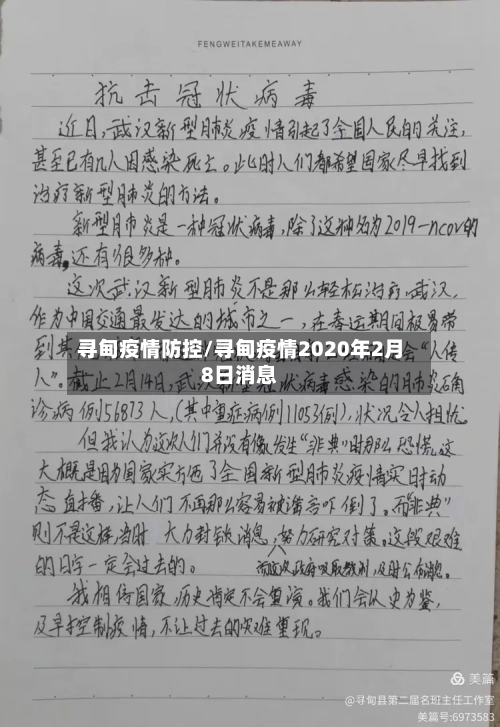 FENGWEITAKEMEAWAY
抗击冠状病毒
近日,武汉新型肺炎疫情引起了全国人民的关注,
甚至已有几人因感染死亡。此时人们都希望国家尽早找到
治疗新型肺炎的方法。
新型肺炎是一种冠状病毒,除了这种名为2019-ncov的
病毒,还有很多种。
这次武汉新型肺炎不是那么轻松治疗,武汉,
作为中国交通最发达的城市之一,在春运期间极易带
到其
会“人传
寻甸疫情防控/寻甸疫情2020年2月
8日消息
人”。截止2月14日,武汉
冠状病毒感染的肺炎确
诊病例56873人,(其中重症病例11053例),状况令人担忧
但我认为这次人们并没有像发生“非典”时那么恐慌,这
大概是因为国家实施了全国新型肺炎疫情实时动
态直播,让人们不再那么容易被谣言吓倒了。而“非典”
则不是这样,当时大力封锁消息,努力研究对策。这段艰难
的日子一定会过去的。
而这次政府吸取教训,及时公布消息。
我相信国家,历史肯定不会重演。我们会以史为鉴,
及早控制疫情,不让过去的灾难重现。
美篇
@寻甸县第二届名班主任工作营
美篇号:6973583